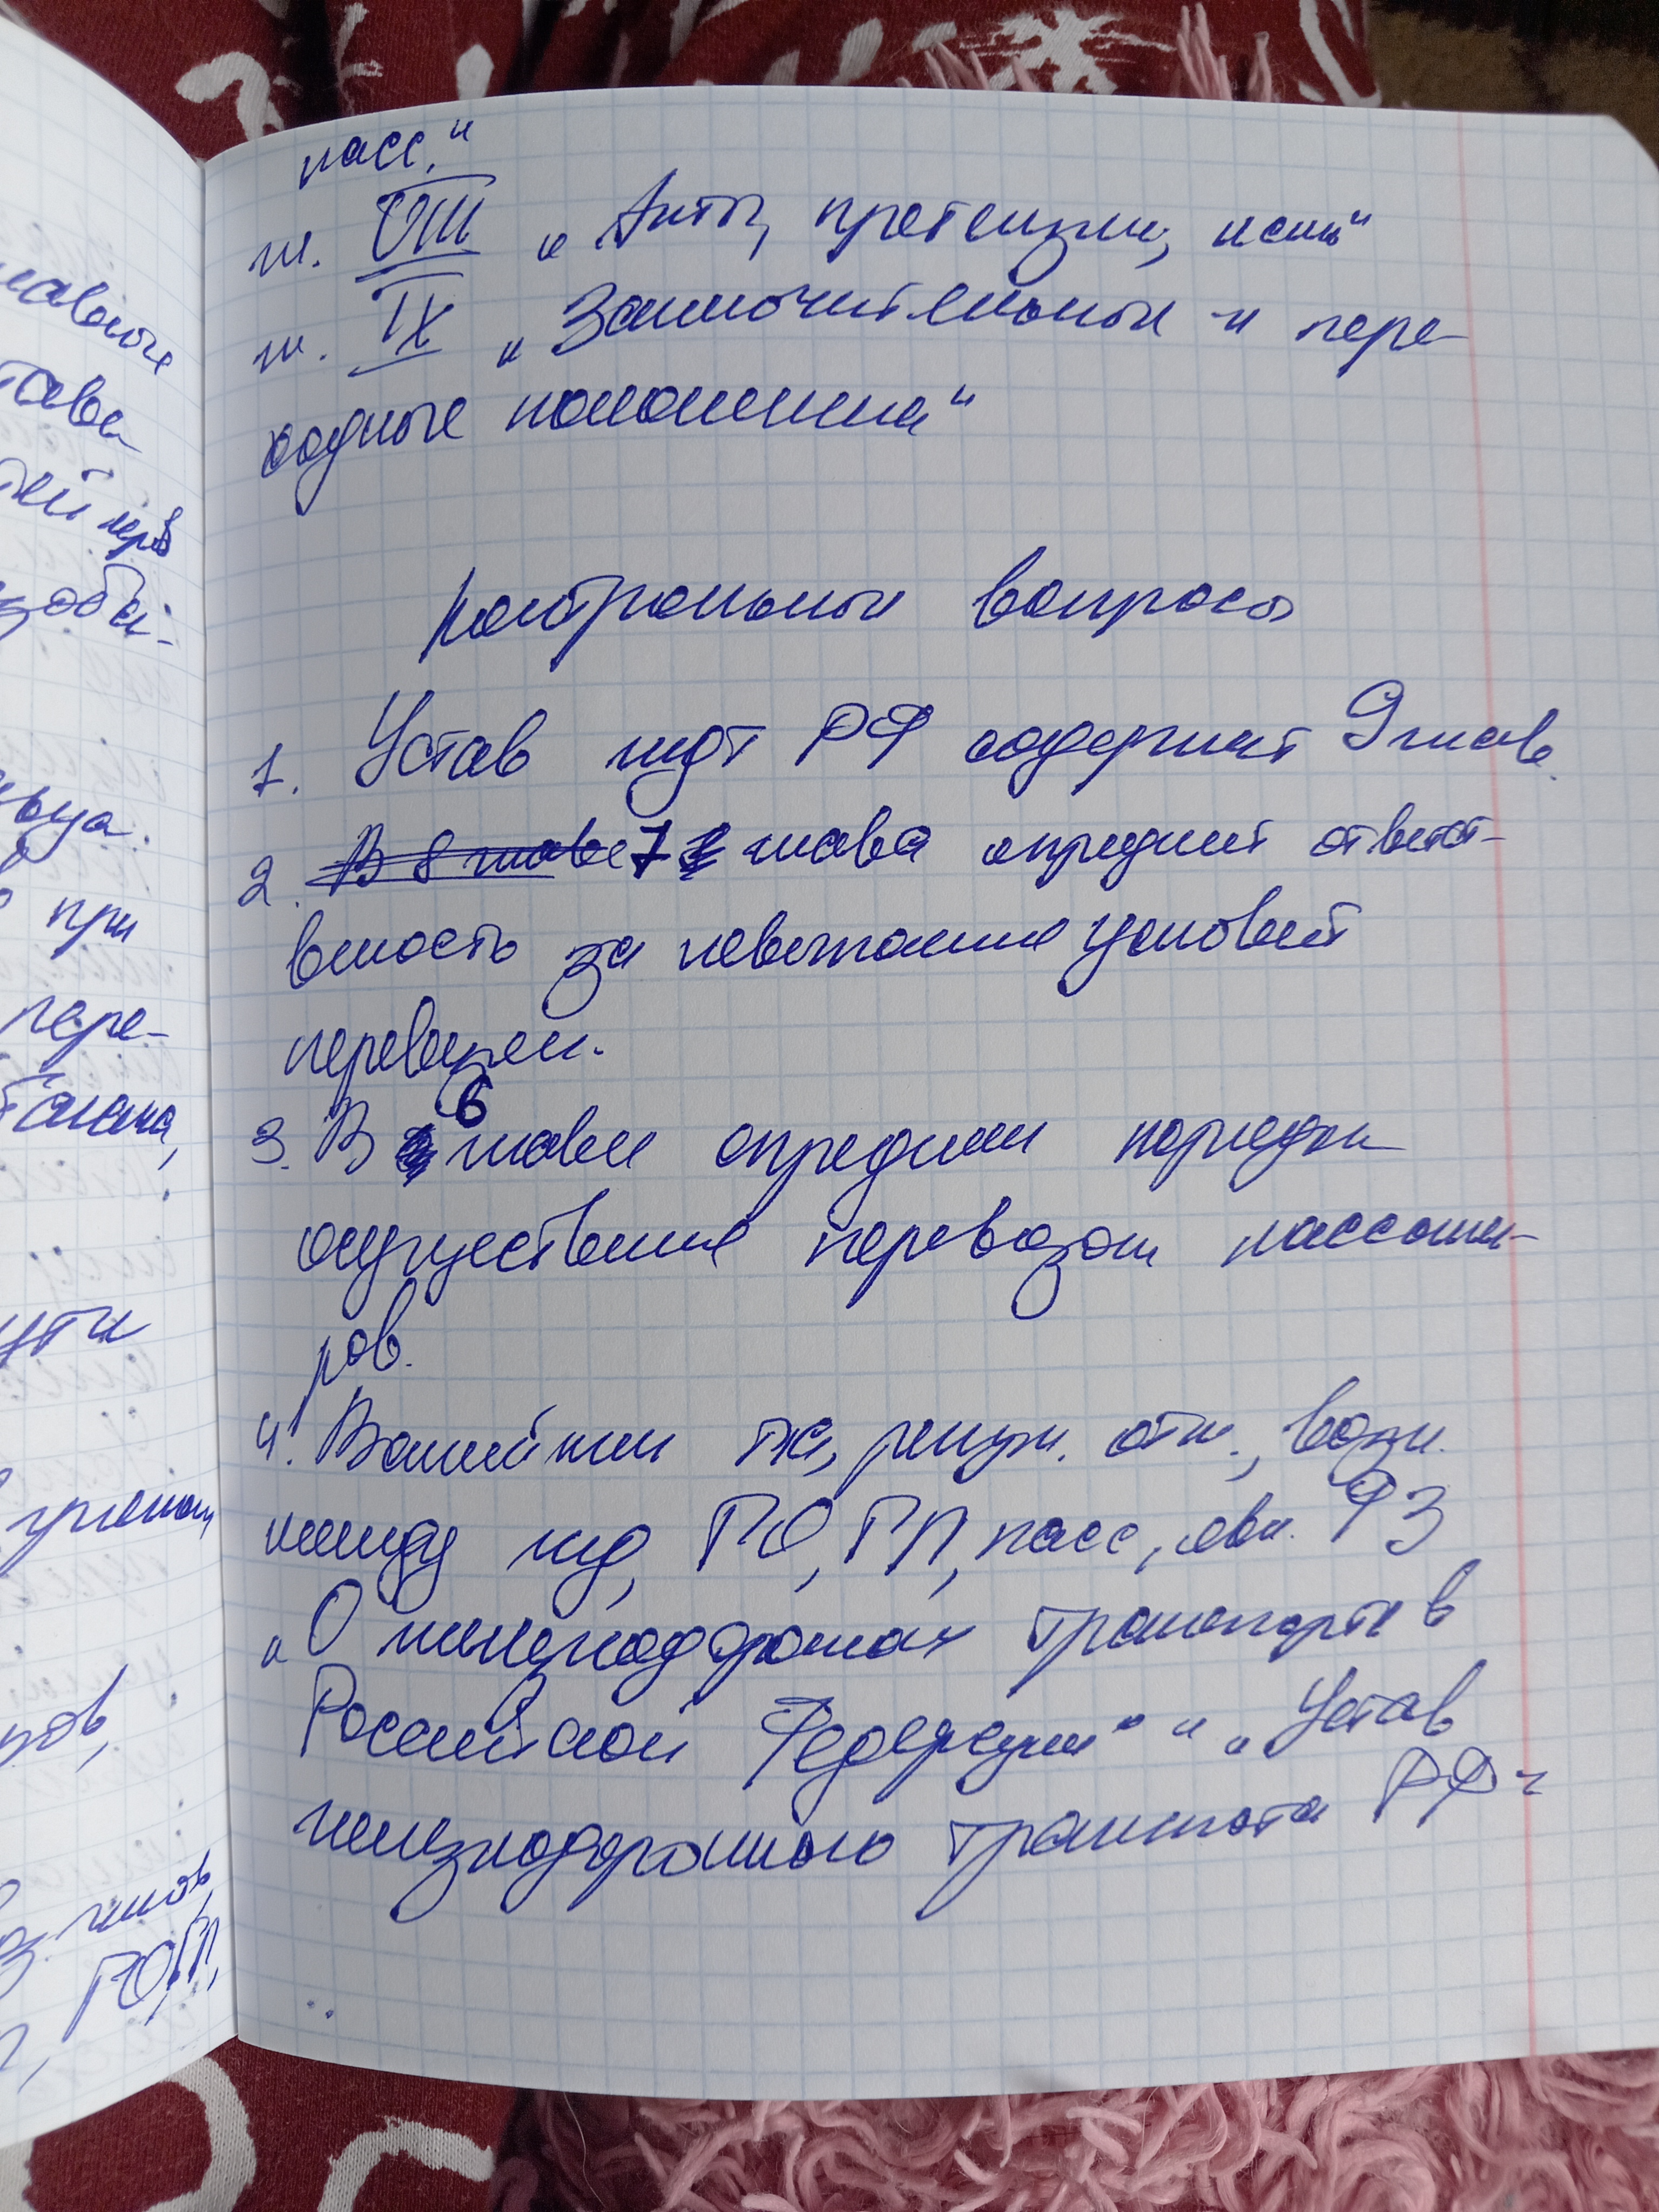 пасс."
гл. VIII „Акты, претензии, иски"
гл. IX „Заключительные и пере-
ходные положения"
Контрольные вопросы
1. Устав ждт РФ содержит 9 глав.
2. В 8 главе 7 глава определяет ответст-
венность за невыполнение условий
перевозки.
3. В 6 главе определены порядки
осуществления перевозок пассажи-
ров.
4. Важнейшим регул. отн., возн.
между жд, ГО, ГП, пасс, явл. ФЗ
„О железнодорожном транспорте в
Российской Федерации" и „Устав
железнодорожного транспорта РФ"
главные
при
пере-
пути
ров,
ГО, ГП,